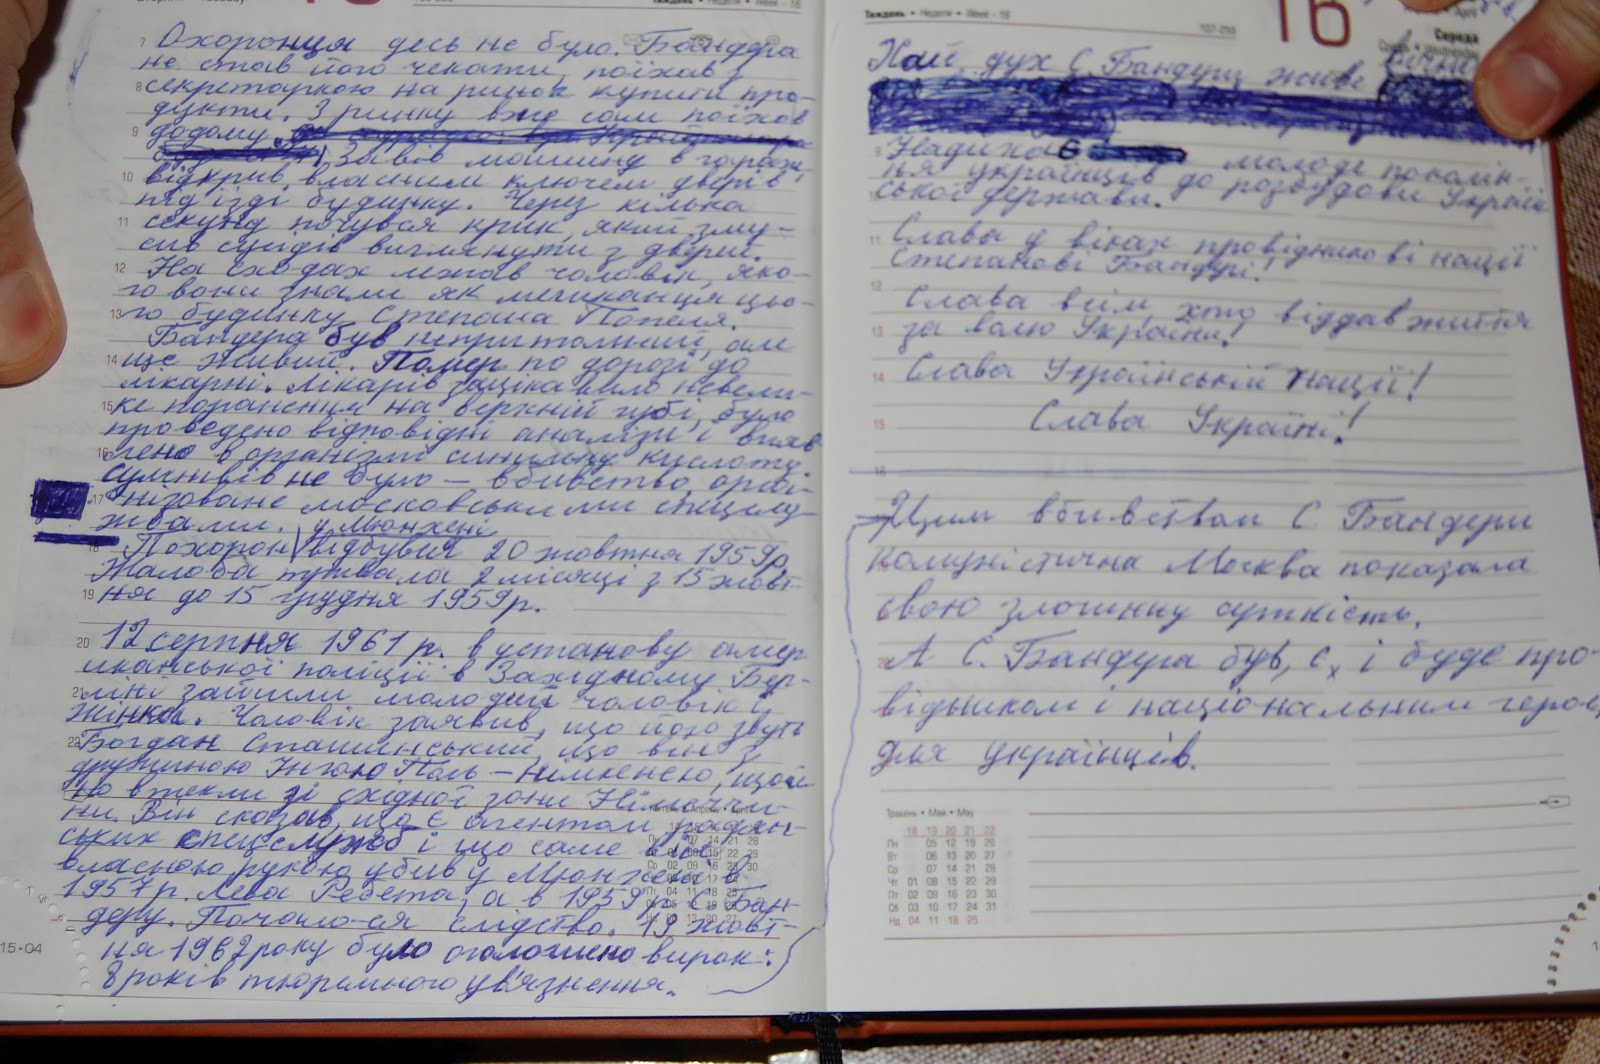 Охоронця десь не було. Бандера
не став його чекати, поїхав з
секретаркою на ринок купити про-
дукти. З ринку вже сам поїхав
додому.
Завів машину в гараж,
відкрив власним ключем двері в
під'їзді будинку. Через кілька
секунд почувся крик, який зму-
сив сусідів виглянути з дверей.
На сходах лежав чоловік, яко-
го вони знали як мешканця цьо-
го будинку Степана Попеля.
Бандера був непритомний, але
ще живий. Помер по дорозі до
лікарні. Лікарів зацікавило невели-
ке поранення на верхній губі, було
проведено відповідні аналізи і вияв-
лено в організмі синильну кислоту.
Сумнівів не було — вбивство, орга-
нізоване московськими спецслу-
жбами. у Мюнхені
Похорон відбувся 20 жовтня 1959р.
Жалоба тривала 2 місяці з 15 жовт-
ня до 15 грудня 1959р.
12 серпня 1961 р. в установу амер
иканської поліції в Західному Бер-
ліні зайшли молодий чоловік і
жінка. Чоловік заявив, що його звуть
Богдан Сташинський, що він з
дружиною Інгою Поль — німкенею, щой
но втекли зі східної зони Німеччи-
ни. Він сказав, що є агентом радян-
ських спецслужб і що саме він
власною рукою убив у Мюнхені в
1957 р. Лева Ребета, а в 1959 р. С. Бан-
деру. Почалося слідство. 19 жовт-
ня 1962 року було оголошено вирок:
8 років тюремного ув'язнення.
15•04
Тиждень • Неделя • Week - 16
16
Середа
Хай дух С. Бандери живе вічно
Надихає молоде поколін-
ня українців до розбудови Україн
ської держави.
Слава у віках провідникові нації
Степанові Бандері!
Слава всім, хто віддав життя
за волю України!
Слава Українській Нації!
Слава Україні!
Цим вбивством С. Бандери
комуністична Москва показала
свою злочинну сутність.
А С. Бандера був, є, і буде про-
відником і національним героєм
для українців.
Травень • Май • May
18 19 20 21 22
Пн 05 12 19 26
Вт 06 13 20 27
Ср 07 14 21 28
Чт 01 08 15 22 29
Пт 02 09 16 23 30
Сб 03 10 17 24 31
Нд 04 11 18 25